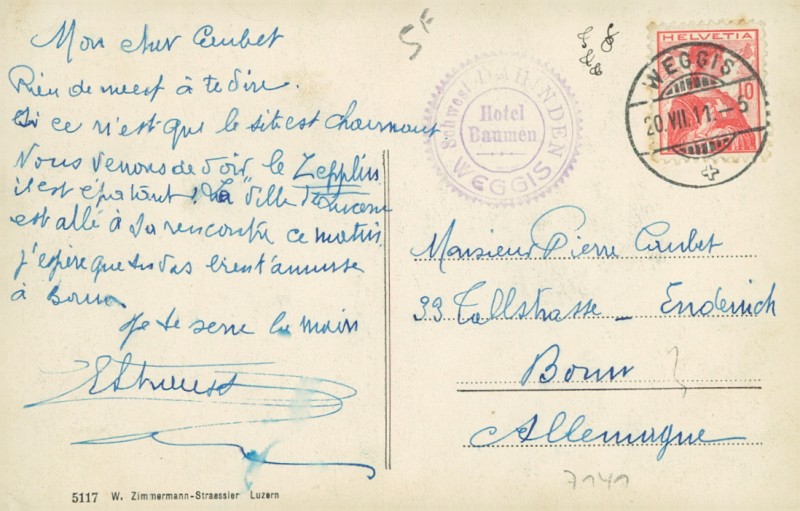 Mon cher Caubet
Rien de neuf à te dire
Si ce n'est que le site est charmant
Nous venons de voir le Zepplin
il est épatant ! La "Ville de Lucerne
est allé à sa rencontre ce matin
j'espère que tu vas bien t'amuser
à Bonn
Je te serre la main
5117 W. Zimmermann-Straessler Luzern
Schwest. DAHINDEN
Hotel
Baumen
WEGGIS
HELVETIA
10
WEGGIS
20.VII.11.-5
Monsieur Pierre Caubet
33 Tallstrasse - Endenich
Bonn
Allemagne